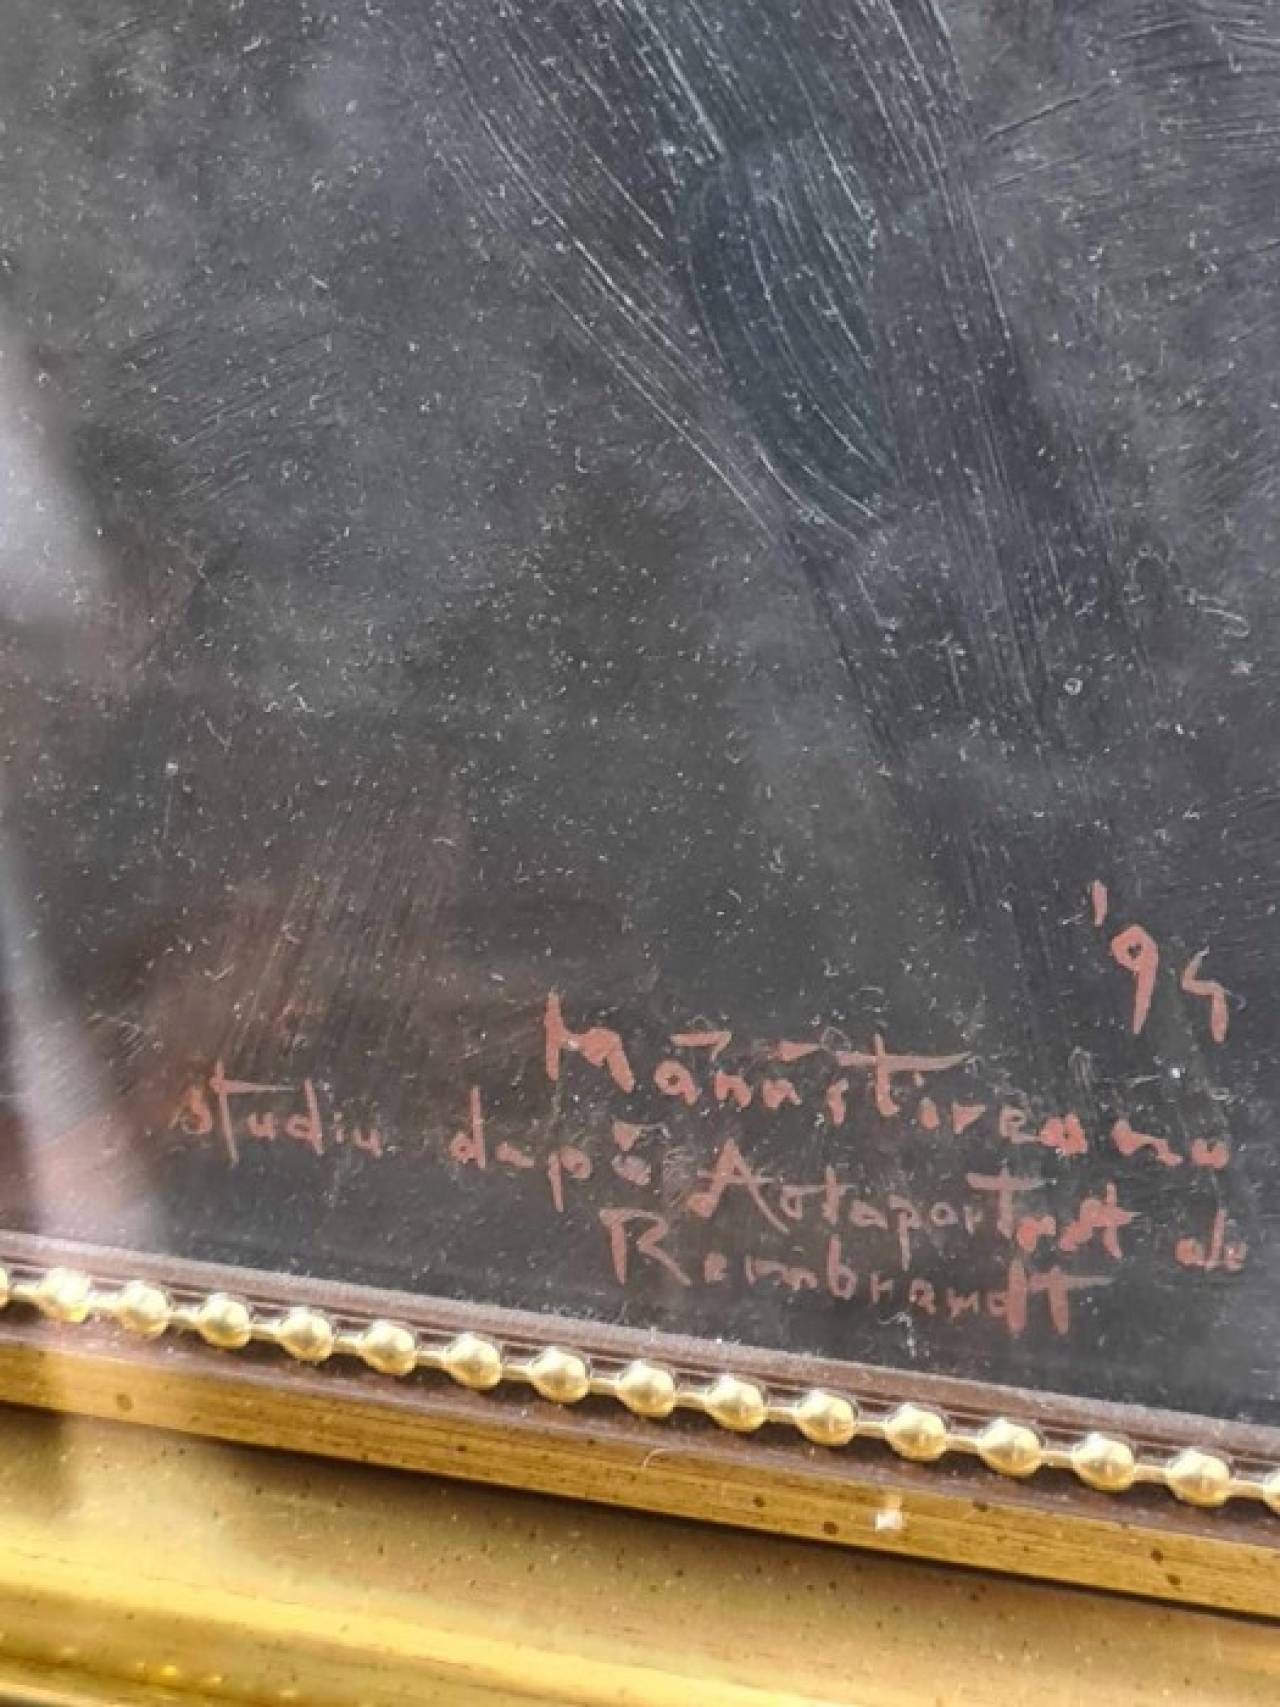 '94
Mănăstireanu
studiu după Autoportret de
Rembrandt